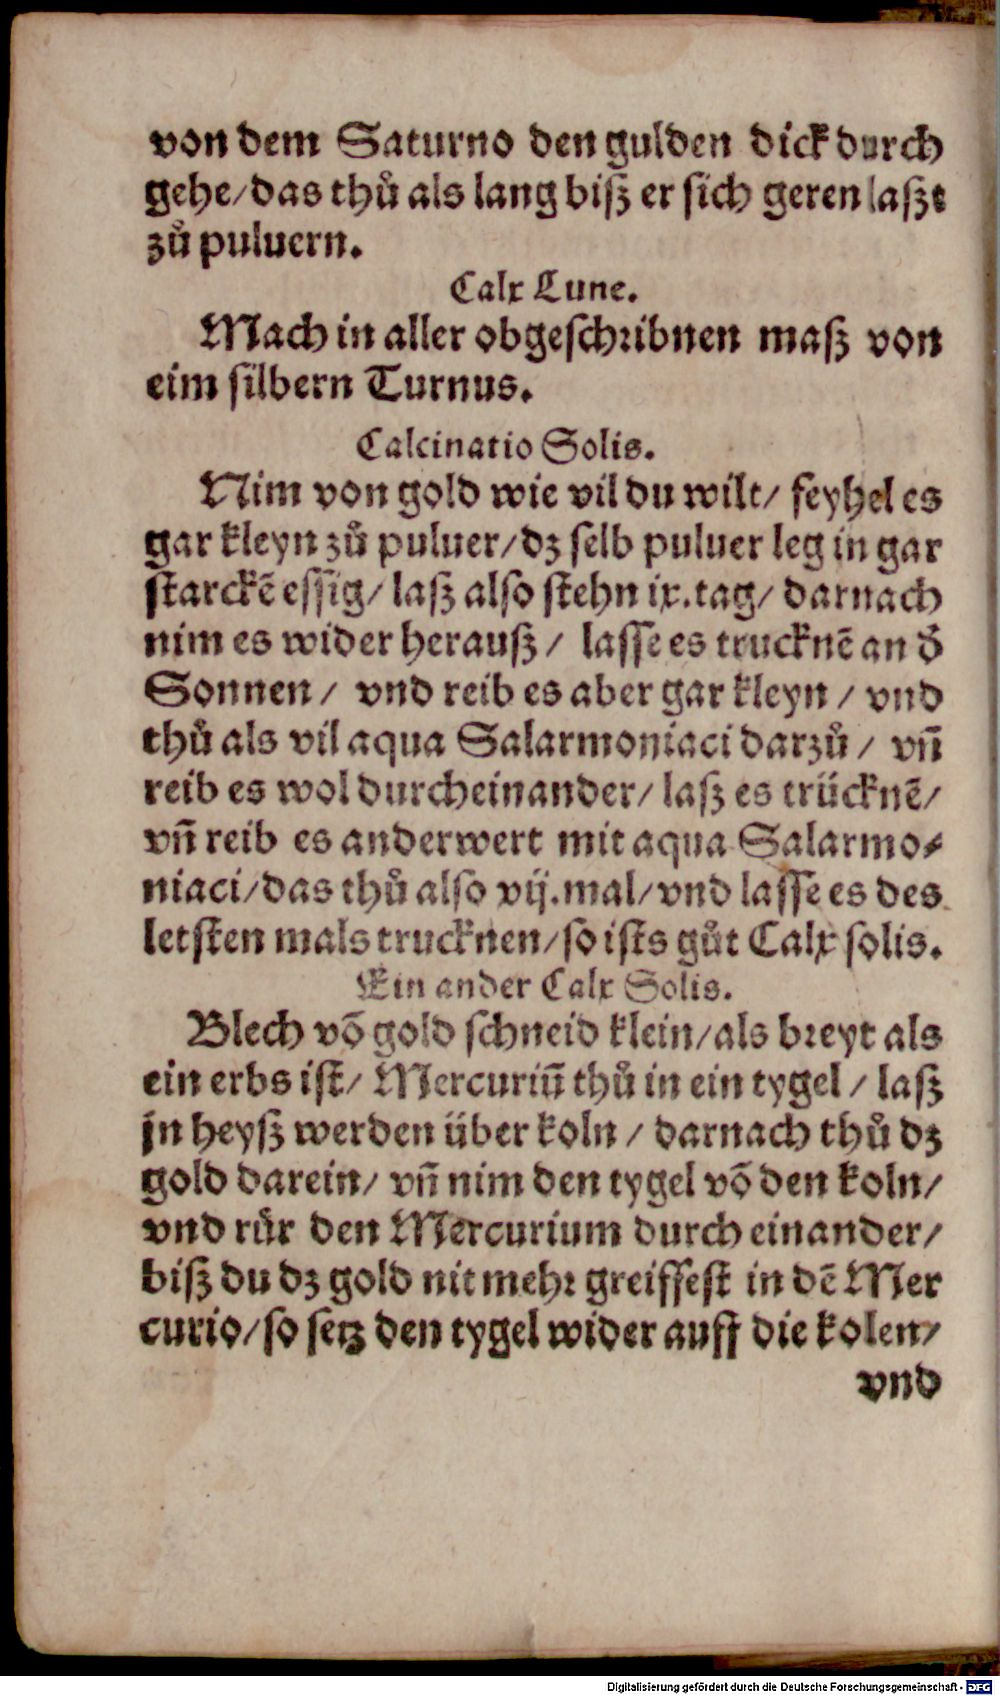 von dem Saturno den gulden dick durch
gehe/das thuͦ als lang biſz er ſich geren laſzt
zuͦ puluern.
Calx Lune.
Mach in aller obgeſchꝛibnen maſz von
eim ſilbern Turnus.
Calcinatio Solis.
Nim von gold wie vil du wilt/ feyhel es
gar kleyn zuͦ puluer/dz ſelb puluer leg in gar
ſtarckē eſſig/ laſz alſo ſtehn ix.tag/ darnach
nim es wider herauſz / laſſe es trucknē an d̓
Sonnen / vnd reib es aber gar kleyn / vnd
thuͦ als vil aqua Salarmoniaci darzuͦ / vñ
reib es wol durcheinander/ laſz es trücknē/
vñ reib es anderwert mit aqua Salarmo⸗
niaci/das thuͦ alſo vij.mal/vnd laſſe es des
letſten mals trucknen/ſo iſts guͦt Calx ſolis.
Ein ander Calx Solis.
Blech võ gold ſchneid klein/als bꝛeyt als
ein erbs iſt/ Mercuriū thuͦ in ein tygel / laſz
jn heyſz werden über koln / darnach thuͦ dz
gold darein/ vñ nim den tygel võ den koln/
vnd ruͤr den Mercurium durch einander/
biſz du dz gold nit mehꝛ greiffeſt in dē Mer
curio/ſo ſetz den tygel wider auff die kolen/
vnd
Digitalisierung gefördert durch die Deutsche Forschungsgemeinschaft - DFG